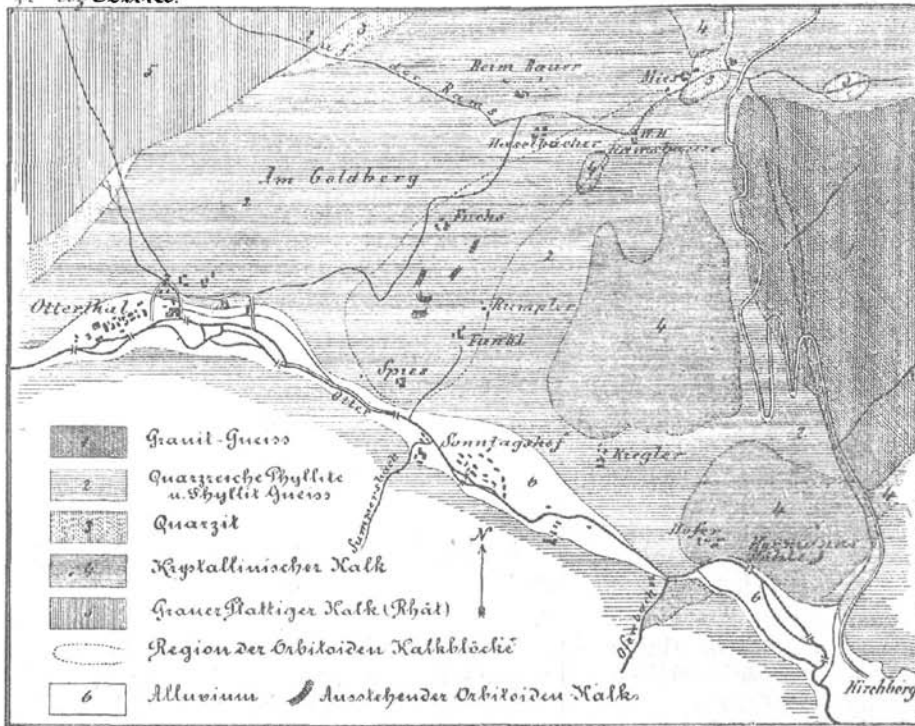 5
3
auf
der
Rams
Beim Bauer
4
Mies
3
3
W.H.
Ramsbauer
4
Am Goldberg
2
Fuchs
2
1
4
Otterthal
Rumpler
Fankl
Spies
Otter
Sonntagshof
6
Kiegler
2
4
Hofer
Hermanns
Höhle
6
Kirchberg
N
1 Granit-Gneiss
2 Quarzreiche Phyllite
u. Phyllit Gneiss
3 Quarzit
4 Krystallinischer Kalk
5 Grauer Plattiger Kalk (Rhät)
Region der Orbitoiden Kalkblöcke
6 Alluvium Anstehender Orbitoiden Kalk